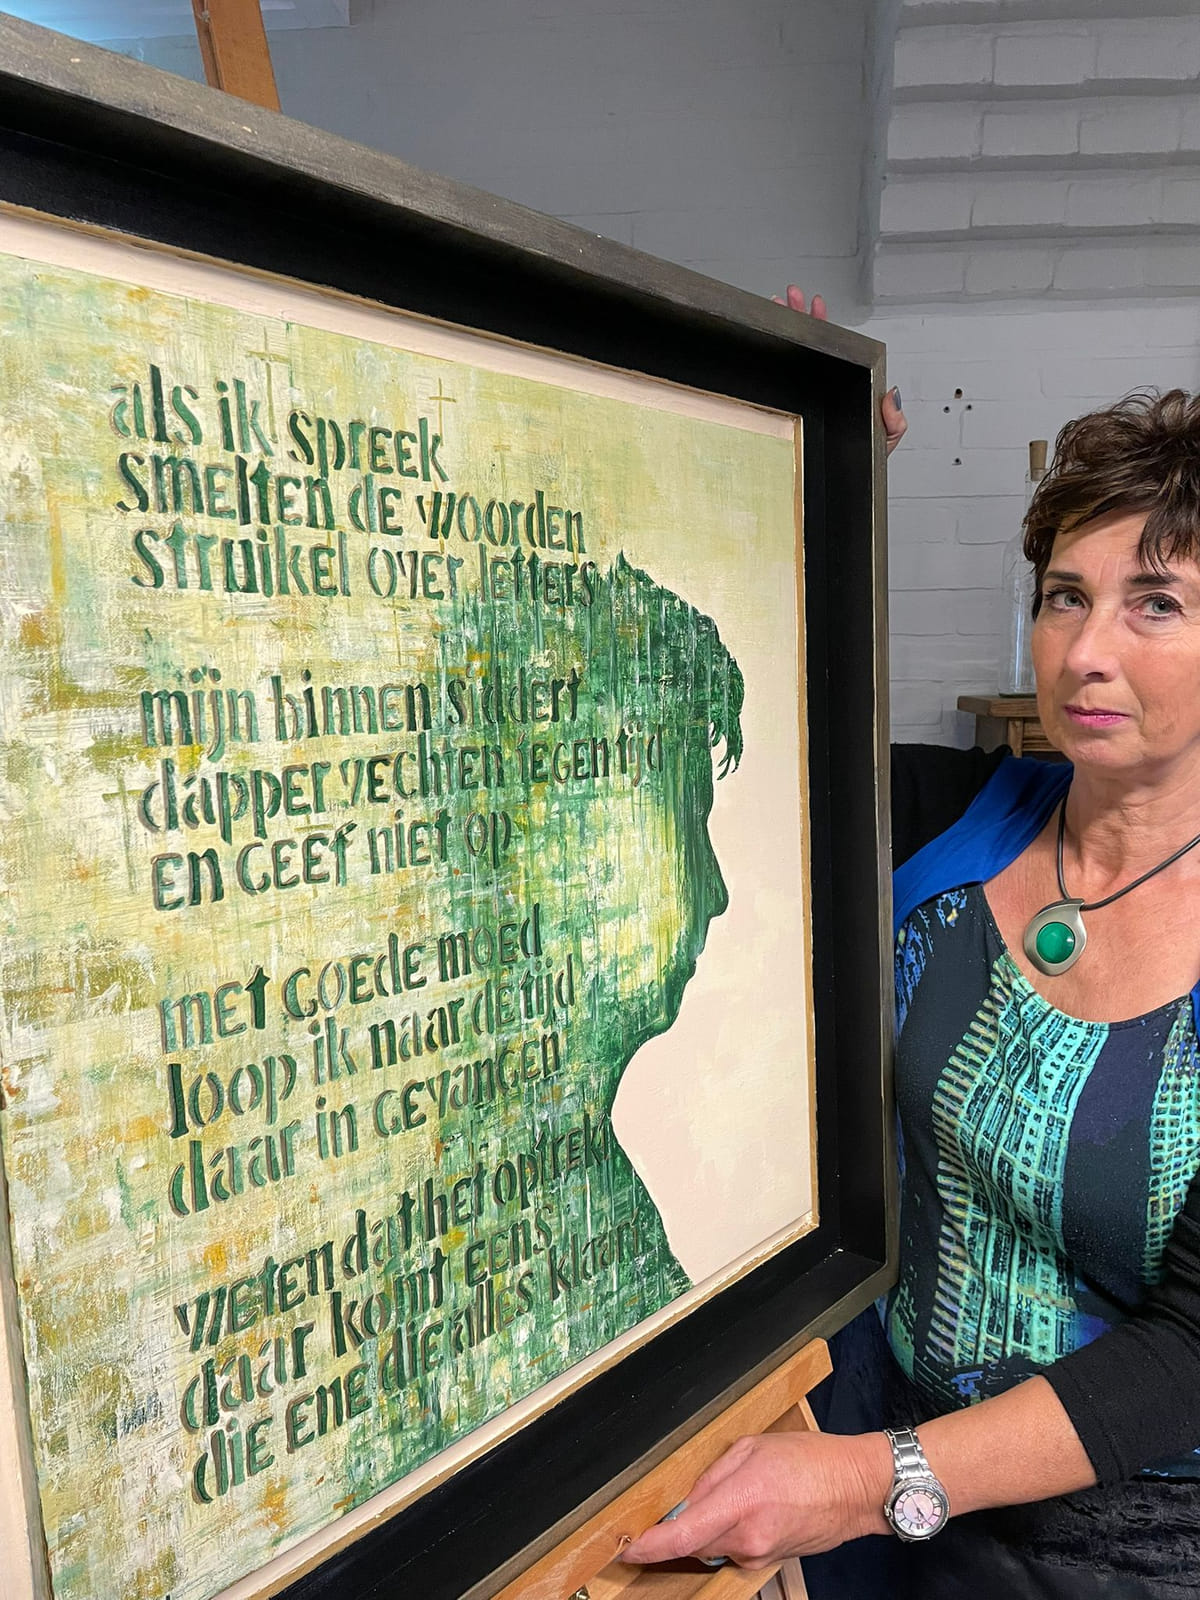 als ik spreek
smelten de woorden
struikel over letters
mijn binnen siddert
dapper vechten tegen tijd
en geef niet op
met goede moed
loop ik naar de tijd
daar in gevangen
weten dat het optrekt
daar komt eens
die ene die alles klaart